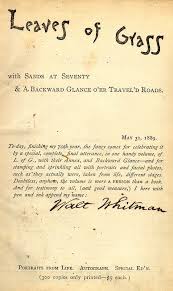 Leaves of Grass
with SANDS AT SEVENTY
& A BACKWARD GLANCE O'ER TRAVEL'D ROADS.
MAY 31, 1889.
To-day, finishing my 70th year, the fancy comes for celebrating it
by a special, complete, final utterance, in one handy volume, of
L. of G., with their Annex, and Backward Glance—and for
stamping and sprinkling all with portraits and facial photos,
such as they actually were, taken from life, different stages.
Doubtless, anyhow, the volume is more A PERSON than a book.
And for testimony to all, (and good measure,) I here with
pen and ink append my name:
Walt Whitman
PORTRAITS FROM LIFE. AUTOGRAPH. SPECIAL ED'N.
(300 copies only printed—$5 each.)